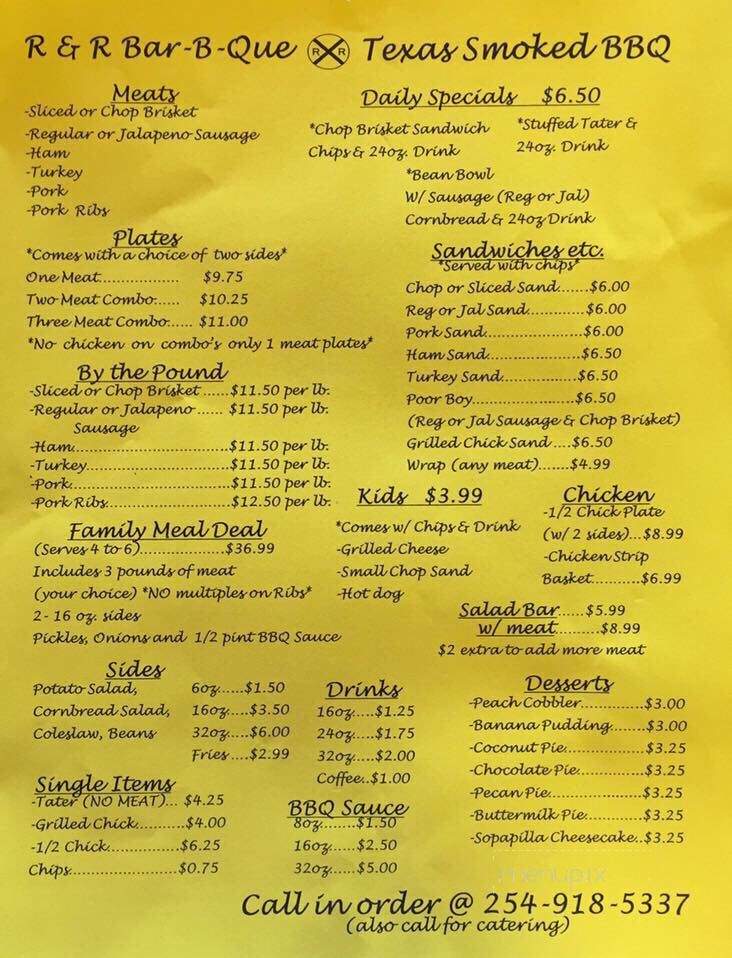 R & R Bar-B-Que RXR Texas Smoked BBQ
Meats
-Sliced or Chop Brisket
-Regular or Jalapeno Sausage
-Ham
-Turkey
-Pork
-Pork Ribs
Daily Specials $6.50
*Chop Brisket Sandwich
Chips & 24oz. Drink
*Stuffed Tater &
24oz. Drink
*Bean Bowl
W/ Sausage (Reg or Jal)
Cornbread & 24oz Drink
Plates
*Comes with a choice of two sides*
One Meat.................. $9.75
Two Meat Combo...... $10.25
Three Meat Combo..... $11.00
*No chicken on combo's only 1 meat plates*
Sandwiches etc.
*Served with chips*
Chop or Sliced Sand.......$6.00
Reg or Jal Sand.............$6.00
Pork Sand......................$6.00
Ham Sand.....................$6.50
Turkey Sand.................$6.50
Poor Boy.......................$6.50
(Reg or Jal Sausage & Chop Brisket)
Grilled Chick Sand ....$6.50
Wrap (any meat).......$4.99
By the Pound
-Sliced or Chop Brisket ......$11.50 per lb.
-Regular or Jalapeno...... $11.50 per lb.
Sausage
-Ham...................................$11.50 per lb.
-Turkey................................$11.50 per lb.
-Pork....................................$11.50 per lb.
-Pork Ribs............................$12.50 per lb.
Family Meal Deal
(Serves 4 to 6)....................$36.99
Includes 3 pounds of meat
(your choice) *NO multiples on Ribs*
2- 16 oz. sides
Pickles, Onions and 1/2 pint BBQ Sauce
Kids $3.99
*Comes w/ Chips & Drink
-Grilled Cheese
-Small Chop Sand
-Hot dog
Chicken
-1/2 Chick Plate
(w/ 2 sides)...$8.99
-Chicken Strip
Basket...........$6.99
Salad Bar......$5.99
w/ meat..........$8.99
$2 extra to add more meat
Sides
Potato Salad, 6oz......$1.50
Cornbread Salad, 16oz....$3.50
Coleslaw, Beans 32oz....$6.00
Fries ....$2.99
Drinks
16oz....$1.25
24oz....$1.75
32oz....$2.00
Coffee..$1.00
Desserts
-Peach Cobbler..............$3.00
-Banana Pudding........$3.00
-Coconut Pie..................$3.25
-Chocolate Pie...............$3.25
-Pecan Pie.....................$3.25
-Buttermilk Pie.............$3.25
-Sopapilla Cheesecake..$3.25
Single Items
-Tater (NO MEAT)... $4.25
-Grilled Chick...........$4.00
-1/2 Chick................$6.25
Chips........................$0.75
BBQ Sauce
8oz........$1.50
16oz......$2.50
32oz......$5.00
menupix
Call in order @ 254-918-5337
(also call for catering)